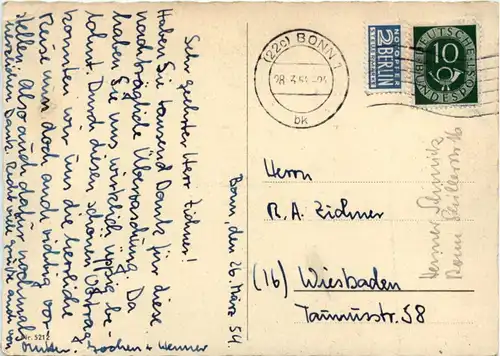 Bonn, den 26. März 54.
Sehr geehrter Herr Zichner!
Haben Sie tausend Dank für diese
nachträgliche Überraschung. Da
haben Sie uns wirklich üppig be-
lohnt. Durch diesen schönen
konnten wir uns die herrliche
Reise nun doch auch richtig vor-
stellen. Also auch dafür nochmal
herzlichen Dank. Recht viele Grüße auch von
Jochen + Werner
Nr. 5212
(22c) BONN 1
28.3.54
bk
NOTOPFER
2 BERLIN
STEUERMARKE
DEUTSCHE
10
BUNDESPOST
Herrn
R. A. Zichner
(16) Wiesbaden
Taunusstr. 58
Werner
Bonn